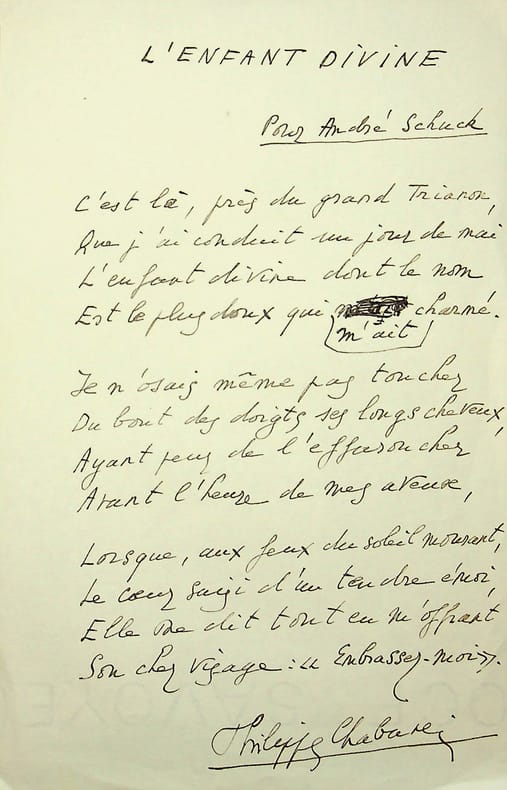 L'ENFANT DIVINE
Pour André Schuck
C'est là, près du grand Trianon,
Que j'ai conduit un jour de mai
L'enfant divine dont le nom
Est le plus doux qui charmé.
m'ait
Je n'osais même pas toucher
Du bout des doigts ses longs cheveux,
Ayant peur de l'effaroucher
Avant l'heure de mes aveux,
Lorsque, aux feux du soleil mourant,
Le cœur saisi d'un tendre émoi,
Elle me dit tout en m'offrant
Son cher visage : « Embrassez-moi ».
Philippe Chabaneix